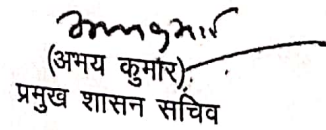 (अभय कुमार)
प्रमुख शासन सचिव